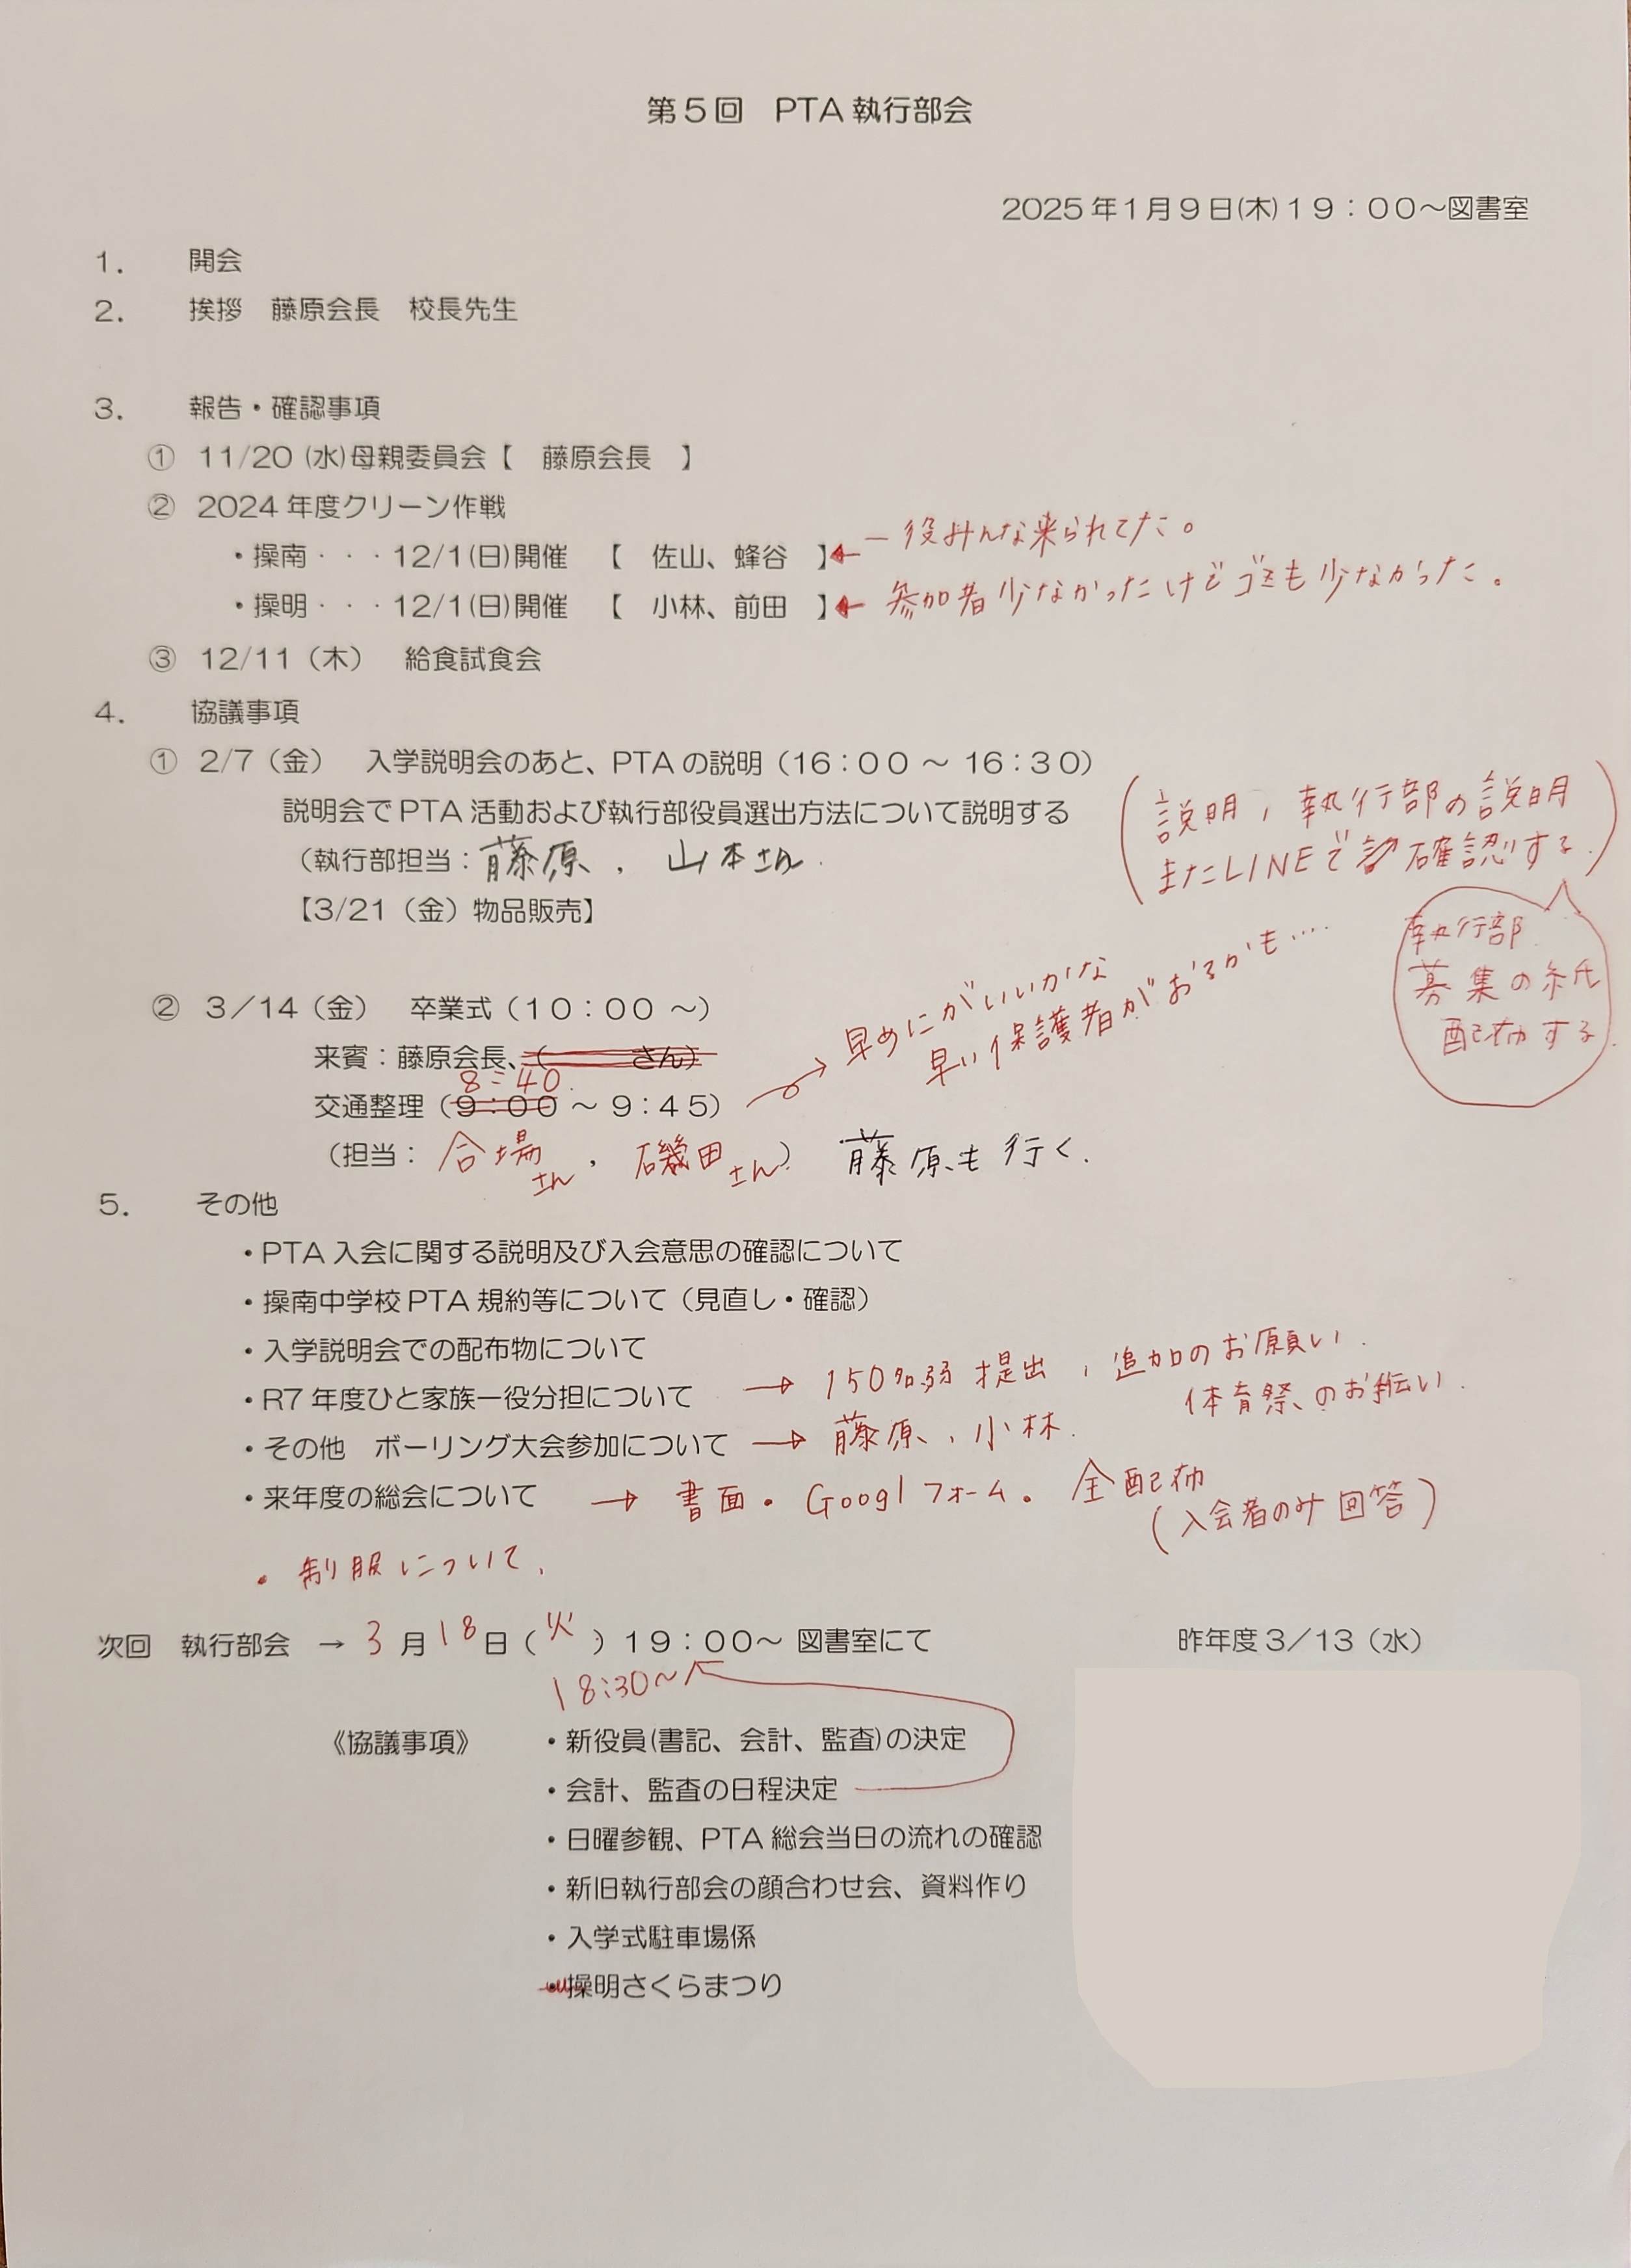 第5回　PTA執行部会
2025年1月9日(木)19：00～図書室
1．　開会
2．　挨拶　藤原会長　校長先生
3．　報告・確認事項
①　11/20 (水)母親委員会【　藤原会長　】
②　2024年度クリーン作戦
・操南・・・12/1(日)開催　【　佐山、蜂谷　】← 一役みんな来られてた。
・操明・・・12/1(日)開催　【　小林、前田　】← 参加者少なかったけどゴミも少なかった。
③　12/11（木）　給食試食会
4．　協議事項
①　2/7（金）　入学説明会のあと、PTAの説明（16：00 ～ 16：30）
説明会でPTA活動および執行部役員選出方法について説明する
（執行部担当：藤原，山本さん．
【3/21（金）物品販売】
（説明，執行部の説明
またLINEで確認する．）
執行部
募集の紙
配布する．
②　3／14（金）　卒業式（10：00 ～）
来賓：藤原会長、（　　　さん）
8：40
交通整理（9：00 ～ 9：45）
→ 早めにがいいかな
早い保護者がおるかも….
（担当：合場さん，磯田さん）　藤原も行く．
5．　その他
・PTA入会に関する説明及び入会意思の確認について
・操南中学校PTA規約等について（見直し・確認）
・入学説明会での配布物について
・R7年度ひと家族一役分担について　→ 150名弱提出，追加のお願い．
体育祭のお手伝い．
・その他　ボーリング大会参加について → 藤原，小林．
・来年度の総会について　→ 書面。Googlフォーム。全配布
（入会者のみ回答）
・制服について．
次回　執行部会　→ 3月18日（火）19：00～ 図書室にて
昨年度3／13（水）
18:30～
《協議事項》　・新役員(書記、会計、監査)の決定
・会計、監査の日程決定
・日曜参観、PTA総会当日の流れの確認
・新旧執行部会の顔合わせ会、資料作り
・入学式駐車場係
・操明さくらまつり